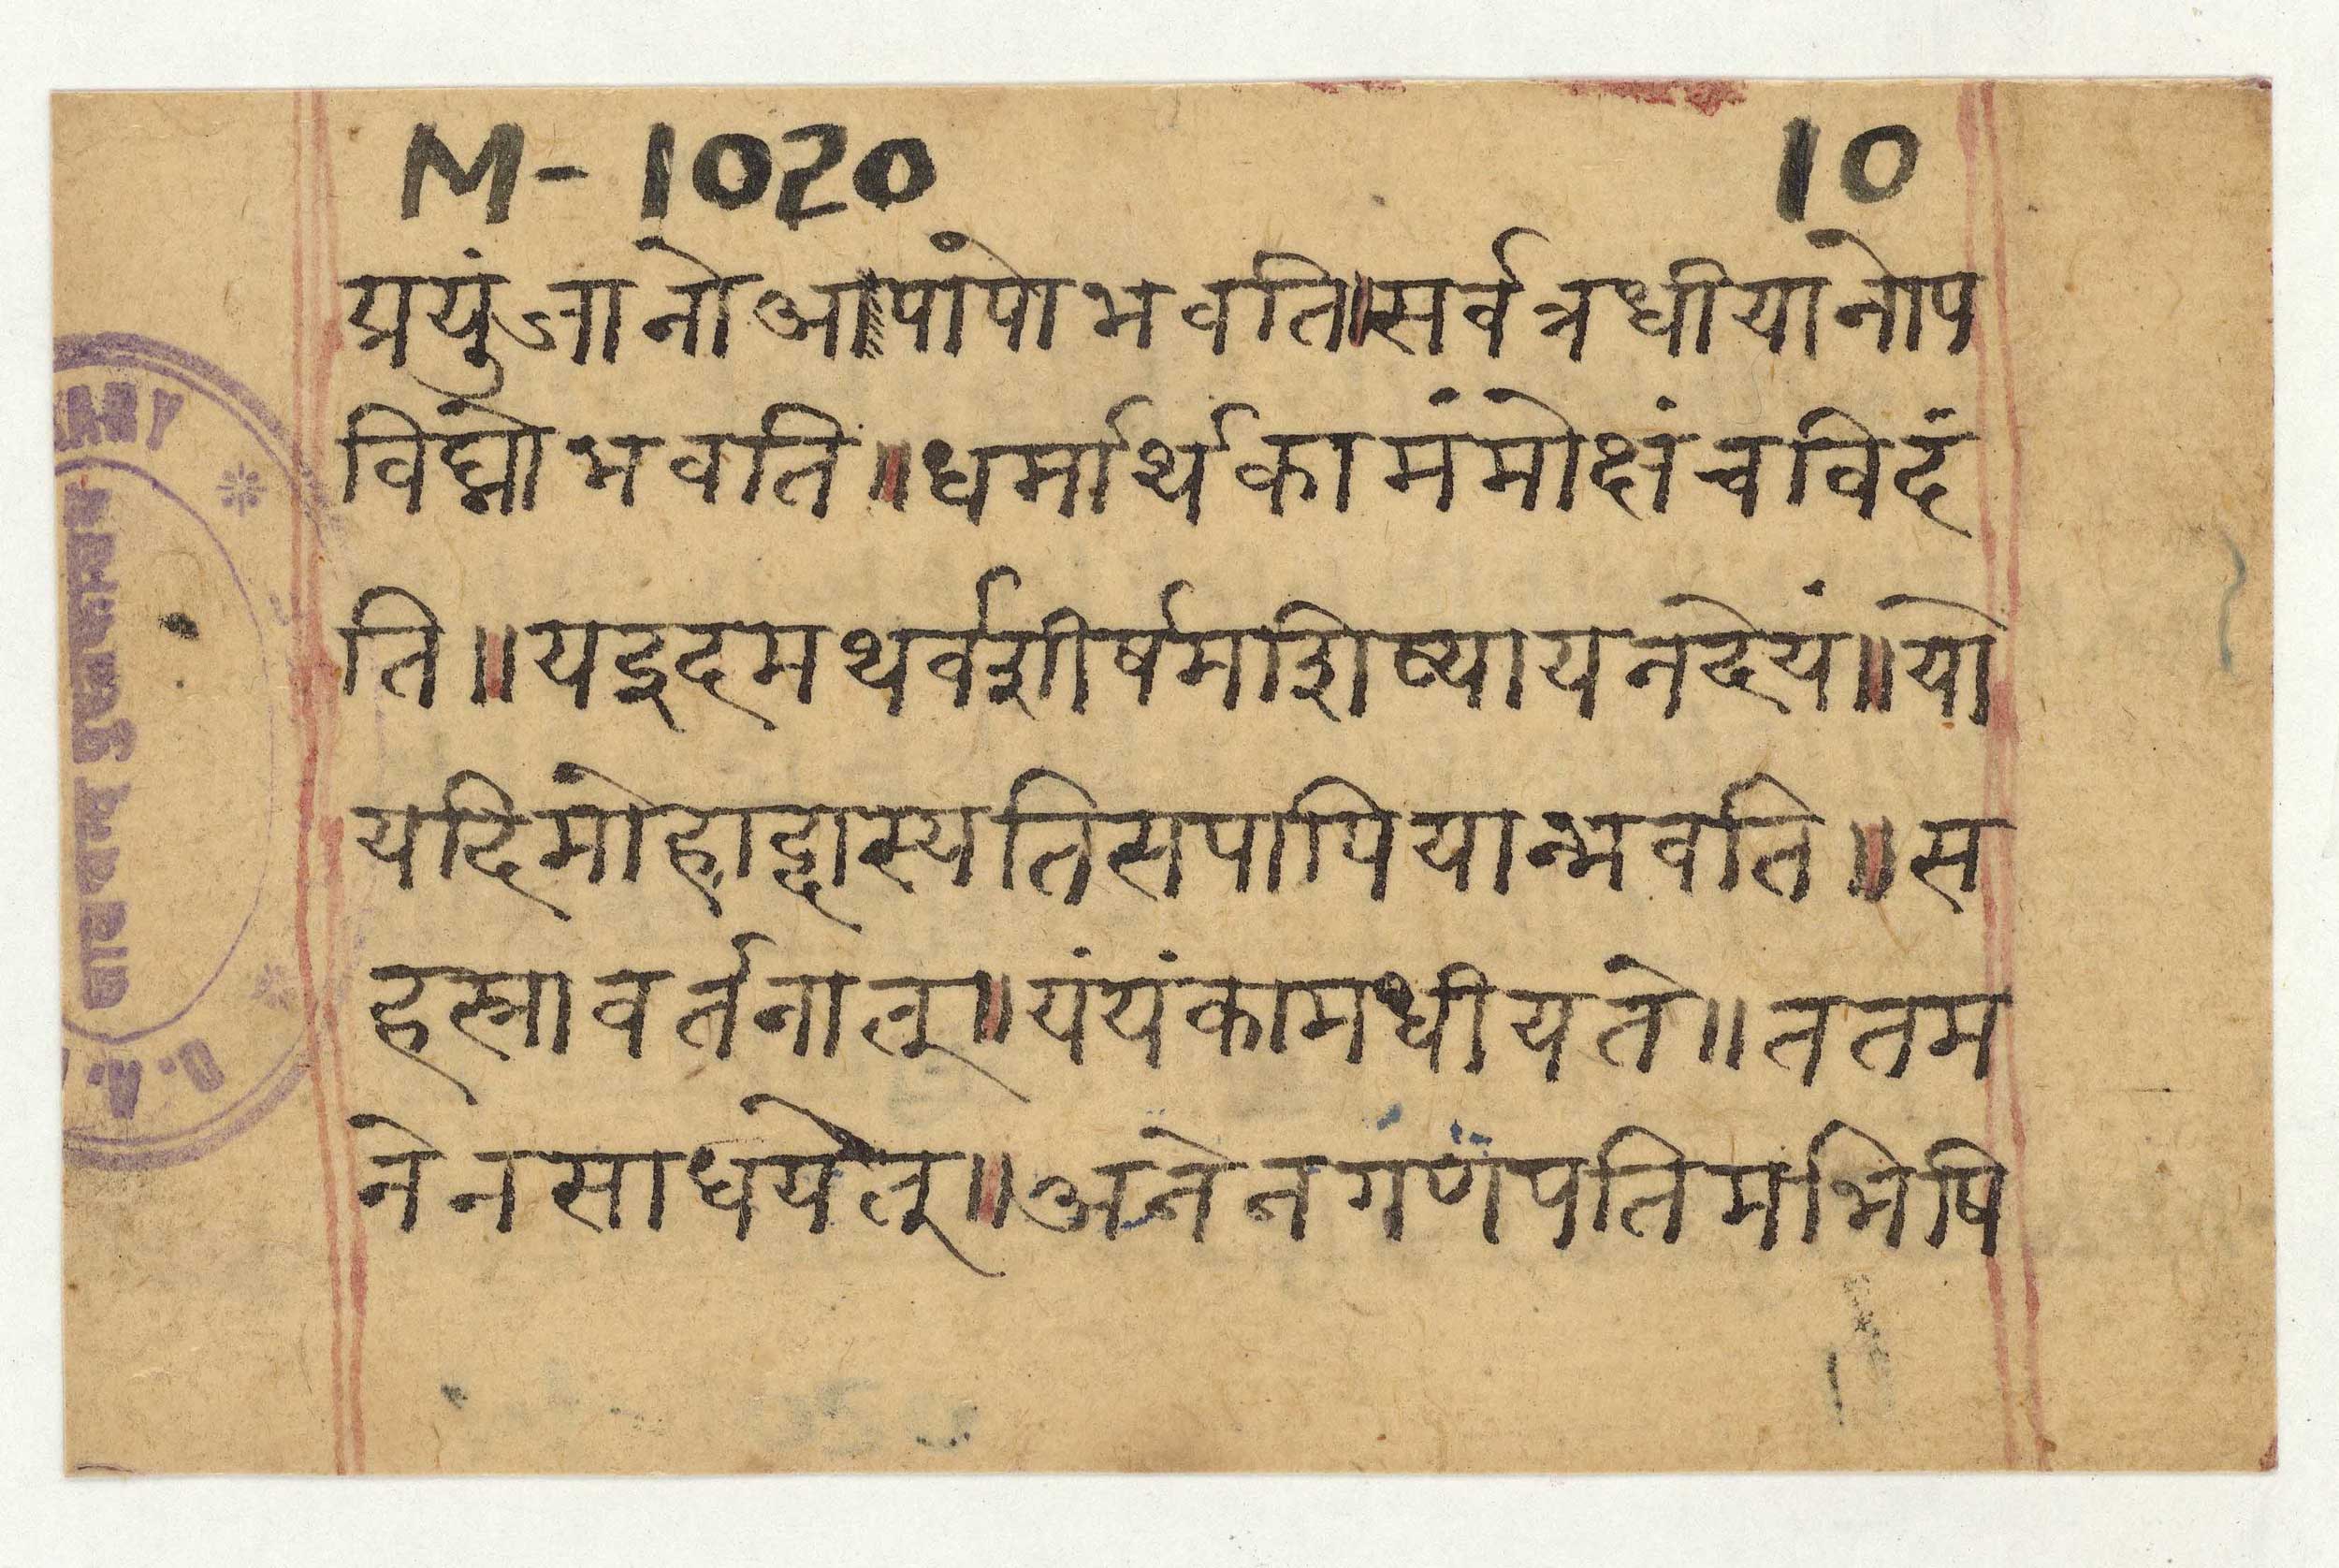 M-1020 10
प्रयुंजानोआपापोभवति॥सर्वत्रधीयानोप
विघ्नोभवति॥धर्मार्थकाममंमोक्षंचविदं
ति॥यइदमथर्वशीर्षमशिष्यायनदेयं॥यो
यदिमोहाद्दास्यतिसपापियान्भवति॥स
हस्त्रावर्तनात्॥यंयंकामधीयते॥ततम
नेनसाधयेत्॥अनेनगणपतिमभिषि